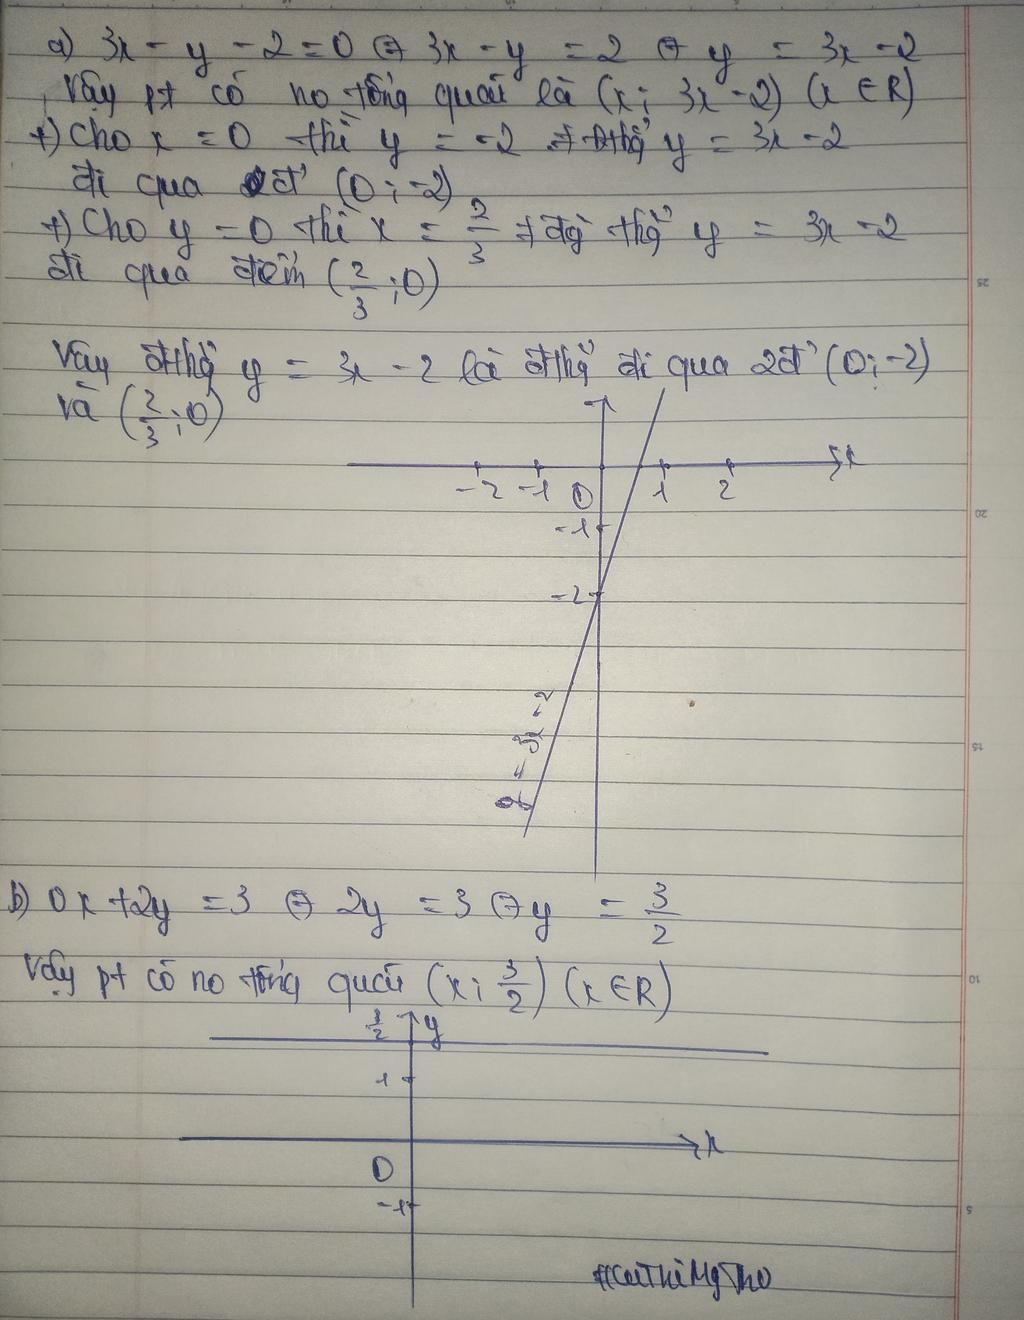 a) 3x - y - 2 = 0 ⇔ 3x - y = 2 ⇔ y = 3x - 2
Vậy pt có no tổng quát là (x; 3x - 2) (x ∈ R)
+) Cho x = 0 thì y = -2 ⇒ đthị y = 3x - 2
đi qua đ' (0; -2)
+) Cho y = 0 thì x = 2/3 ⇒ đồ thị y = 3x - 2
đi qua điểm (2/3; 0)
Vậy đthị y = 3x - 2 là đthị đi qua 2đ' (0; -2)
và (2/3; 0)
x
-2 -1 O 1 2
-1
-2
y = 3x - 2
b) 0x + 2y = 3 ⇔ 2y = 3 ⇔ y = 3/2
Vậy pt có no tổng quát (x; 3/2) (x ∈ R)
3/2 y
1
x
O
-1
25
20
15
10
5